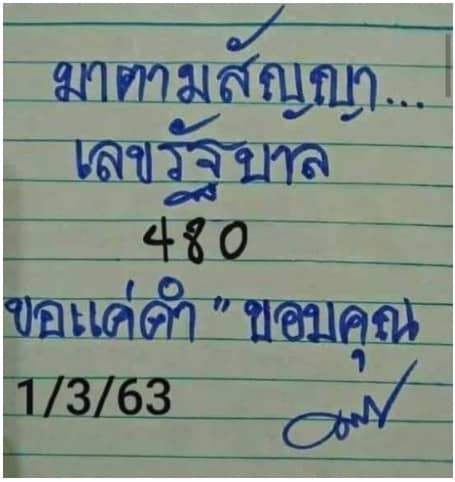 มาตามสัญญา...
เลขรัฐบาล
480
ขอแค่คำ " ขอบคุณ
1/3/63